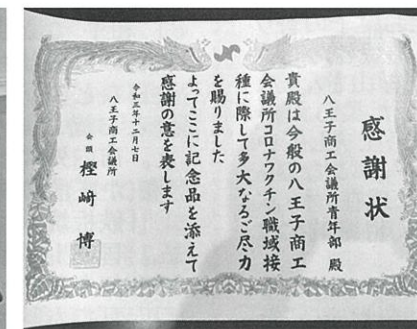 感謝状
八王子商工会議所青年部 殿
貴殿は今般の八王子商工
会議所コロナワクチン職域接
種に際して多大なるご尽力
を賜りました
よってここに記念品を添えて
感謝の意を表します
令和三年十二月七日
八王子商工会議所
会頭 樫﨑 博